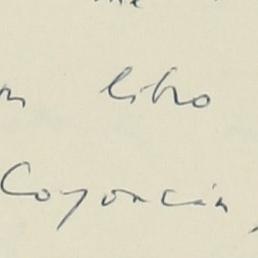 me
libro
Coyoacán,